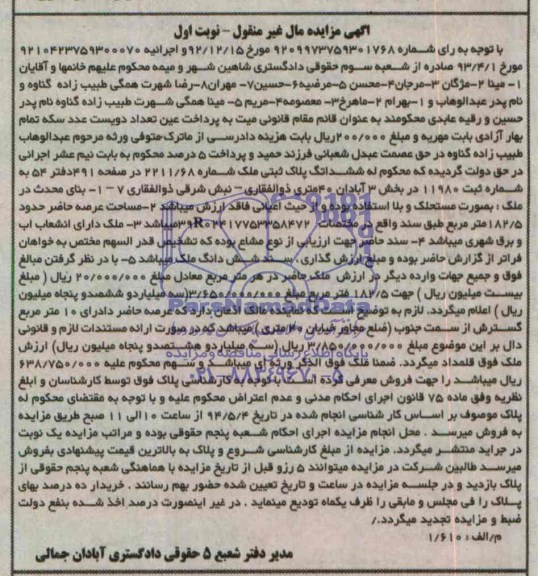 آگهی مزایده مال غیر منقول - نوبت اول
با توجه به رای شماره ۹۲۰۹۹۷۳۷۵۹۳۰۱۷۶۸ مورخ ۹۲/۱۲/۱۵ و اجرائیه ۹۲۱۰۴۲۳۷۵۹۳۰۰۰۷۰
مورخ ۹۳/۴/۱ صادره از شعبه سوم حقوقی دادگستری شاهین شهر و میمه محکوم علیهم خانمها و آقایان
۱- مینا ۲-مژگان ۳-مرجان ۴-محسن ۵-مرضیه ۶-حسین ۷- مهران ۸-رضا شهرت همگی طبیب زاده گناوه و
نام پدر عبدالوهاب و ۱-بهرام ۲-ماهرخ ۳- معصومه ۴-مریم ۵- مینا همگی شهرت طبیب زاده گناوه نام پدر
حسین و رقیه عابدی محکومند به عنوان قائم مقام قانونی میت به پرداخت عین تعداد دویست عدد سکه تمام
بهار آزادی بابت مهریه و مبلغ ۲۰۰/۰۰۰ریال بابت هزینه دادرسی از ماترک متوفی ورثه مرحوم عبدالوهاب
طبیب زاده گناوه در حق عصمت عبدل شعبانی فرزند حمید و پرداخت ۵ درصد محکوم به بابت نیم عشر اجرائی
در حق دولت گردیده که محکوم له ششدانگ پلاک ثبتی ملک شماره ۲۲۱۱/۶۸ در صفحه ۴۹۱دفتر ۵۴ به
شماره ثبت ۱۱۹۸۰ در بخش ۳ آبادان ۴۰متری ذوالفقاری – نبش شرقی ذوالفقاری ۷ – ۱- بنای محدث در
ملک : بصورت مستهلک و بلا استفاده بوده و از حیث اعیانی فاقد ارزش میباشد ۲-مساحت عرصه حاضر حدود
۱۸۲/۵ متر مربع طبق سند واقع در مختصات میباشد ۳- ملک دارای انشعاب اب
و برق شهری میباشد ۴- سند حاضر جهت ارزیابی از نوع مشاع بوده که تشخیص قدر السهم مختص به خواهان
فراتر از گزارش حاضر بوده و مبلغ ارزش گذاری، سند شش دانگ ملک میباشد ۵- با در نظر گرفتن مبالغ
فوق و جمیع جهات وارده دیگر در ارزش ملک حاضر در هر متر مربع معادل مبلغ ۲۰/۰۰۰/۰۰۰ ریال ( مبلغ
بیست میلیون ریال ) جهت ۱۸۲/۵ متر مربع مبلغ ۳/۶۵۰/۰۰۰/۰۰۰(سه میلیاردو ششصدو پنجاه میلیون
ریال ) اعلام میگردد. لازم به توضیح است که نماینده مالک اذعان دارد که عرصه حاضر دادرای ۱۰ متر مربع
گسترش از سمت جنوب (ضلع مجاور خیابان ۴۰ متری ) میباشد که در صورت ارائه مستندات لازم و قانونی
دال بر این موضوع مبلغ ۳/۸۵۰/۰۰۰/۰۰۰ ریال (سه میلیاردو هشتصدو پنجاه میلیون ریال) ارزش
ملک فوق قلمداد میگردد. ضمنا ملک فوق الذکر ورثه ای میباشد و سهم محکوم علیه ۶۳۸/۷۵۰/۰۰۰
ریال میباشد را جهت فروش معرفی کرده است. با توجه به کارشناسی پلاک فوق توسط کارشناسان و ابلغ
نظریه وفق ماده ۷۵ قانون اجرای احکام مدنی و عدم اعتراض محکوم علیه و با توجه به مقتضای محکوم له
پلاک موصوف بر اساس کار شناسی انجام شده در تاریخ ۹۴/۵/۴ از ساعت ۱۰ الی ۱۱ صبح طریق مزایده
به فروش میرسد . محل انجام مزایده اجرای احکام شعبه پنجم حقوقی بوده و مراتب مزایده یک نوبت
در جراید منتشر میگردد. مزایده از مبلغ کارشناسی شروع و پلاک به بالاترین قیمت پیشنهادی بفروش
میرسد طالبین شرکت در مزایده میتوانند ۵ رزو قبل از تاریخ مزایده با هماهنگی شعبه پنجم حقوقی از
پلاک بازدید و در جلسه مزایده در ساعت و تاریخ تعیین شده حضور بهم رسانند . خریدار ده درصد بهای
پلاک را فی مجلس و مابقی را ظرف یکماه تودیع مینماید . در غیر اینصورت درصد اخذ شده بنفع دولت
ضبط و مزایده تجدید میگردد./
م/الف : ۱/۶۱۰
مدیر دفتر شعبع ۵ حقوقی دادگستری آبادان جمالی